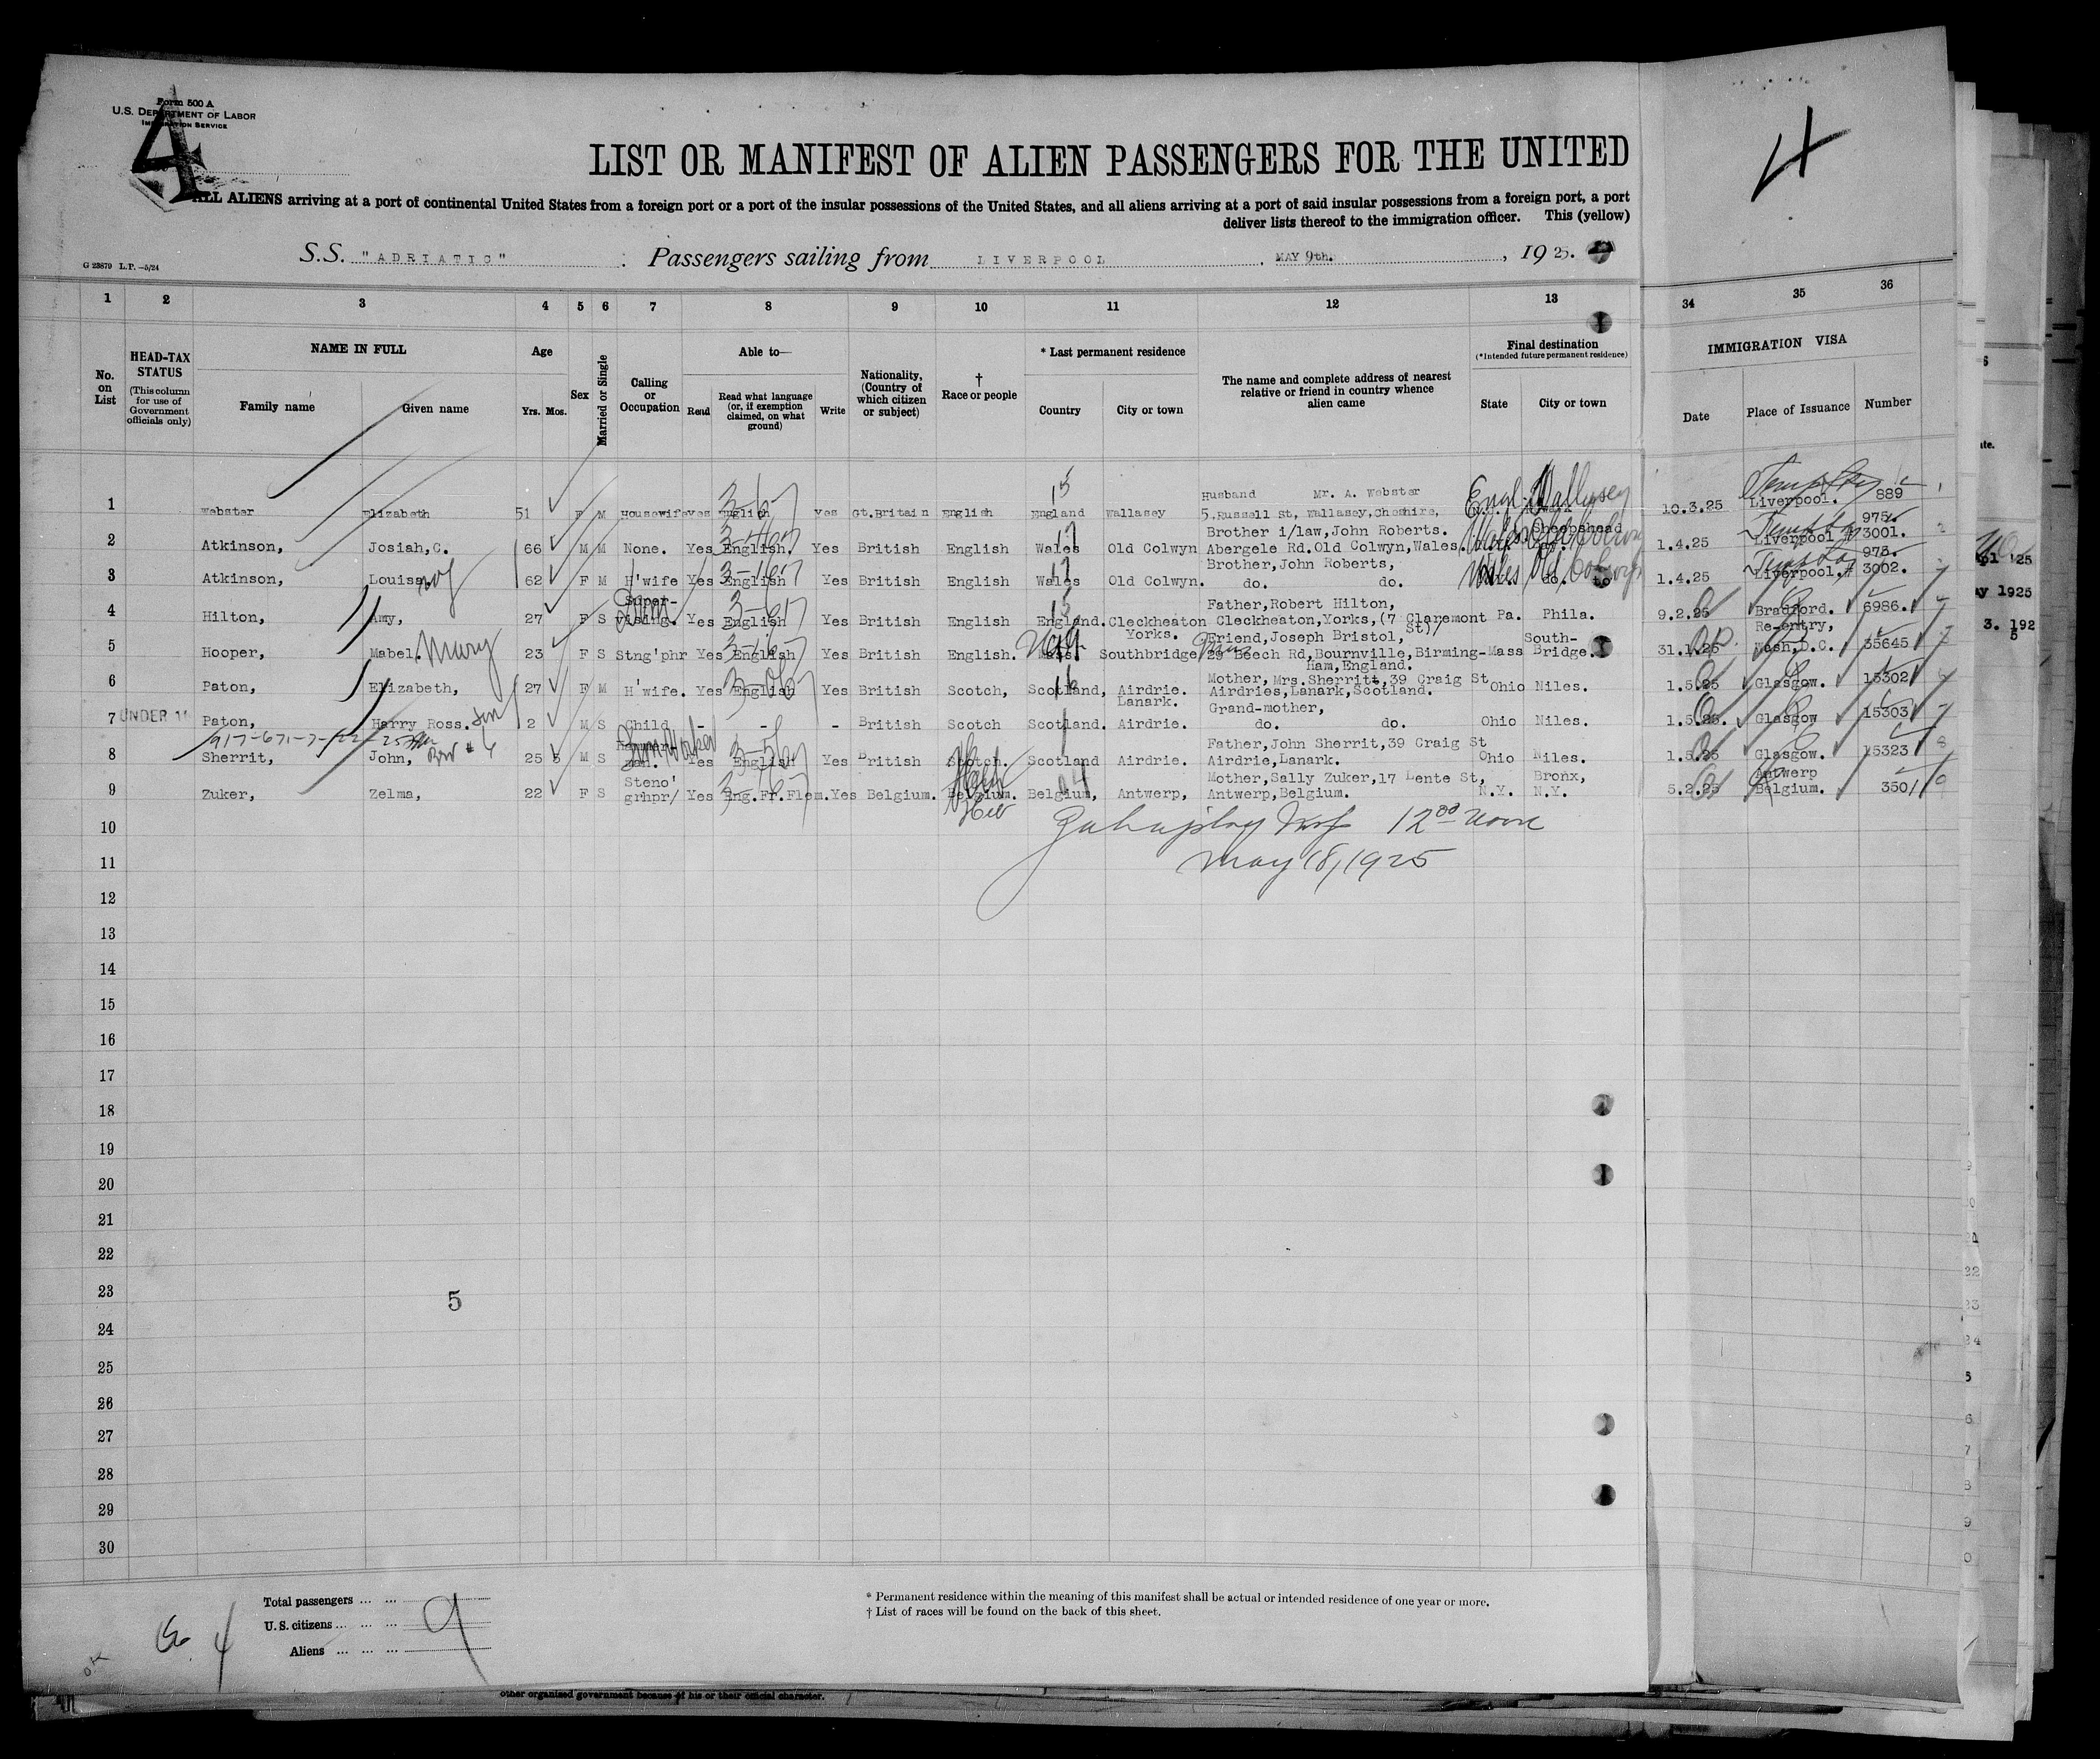 Form 500 A
U.S. DEPARTMENT OF LABOR
IMMIGRATION SERVICE
4
4
LIST OR MANIFEST OF ALIEN PASSENGERS FOR THE UNITED
ALL ALIENS arriving at a port of continental United States from a foreign port or a port of the insular possessions of the United States, and all aliens arriving at a port of said insular possessions from a foreign port, a port
deliver lists thereof to the immigration officer. This (yellow)
G 23879 L.T.—5/24
S.S. "ADRIATIC" Passengers sailing from LIVERPOOL, MAY 9th., 1925.
1 2 3 4 5 6 7 8 9 10 11 12 13 34 35 36
No. on List
HEAD-TAX STATUS (This column for use of Government officials only)
NAME IN FULL Family name Given name
Age Yrs. Mos.
Sex
Married or Single
Calling or Occupation
Able to— Read Read what language (or, if exemption claimed, on what ground) Write
Nationality, (Country of which citizen or subject)
† Race or people
* Last permanent residence Country City or town
The name and complete address of nearest relative or friend in country whence alien came
Final destination (*Intended future permanent residence) State City or town
IMMIGRATION VISA Date Place of Issuance Number
1 Webster Elizabeth 51 F M Housewife yes English yes Gt.Britain English England Wallasey Husband Mr. A. Webster 5,Russell St, Wallasey,Cheshire, Engl. Wallasey 10.3.25 Liverpool. 889
2 Atkinson, Josiah,C. 66 M M None. Yes English. Yes British English Wales Old Colwyn Brother i/law,John Roberts. Abergele Rd.Old Colwyn,Wales. Wales Old Colwyn 1.4.25 Liverpool 975. 3001.
3 Atkinson, Louisa, 62 F M H'wife Yes English Yes British English Wales Old Colwyn. Brother,John Roberts, do. do. Wales Old Colwyn do. to 1.4.25 Liverpool. 975. 3002.
4 Hilton, Amy, 27 F S Super-vising. Yes English Yes British English England. Cleckheaton Yorks. Father,Robert Hilton, Cleckheaton,Yorks,(7 Claremont St)/ Pa. Phila. 9.2.25 Bradford. 6986.
5 Hooper, Mabel. Mary 23 F S Stng'phr Yes English Yes British English. Mass. Southbridge Friend,Joseph Bristol, 29 Beech Rd,Bournville,Birming-ham,England. Mass South-Bridge. 31.1.25 Re-entry, Wash,D.C. 35645
6 Paton, Elizabeth, 27 F M H'wife. Yes English Yes British Scotch, Scotland, Airdrie. Lanark. Mother, Mrs.Sherritt,39 Craig St Airdries,Lanark,Scotland. Ohio Niles. 1.5.25 Glasgow. 15302
7 UNDER 16 Paton, Harry Ross. 2 M S Child - - - British Scotch Scotland. Airdrie. Grand-mother, do. do. Ohio Niles. 1.5.25. Glasgow 15303
8 Sherrit, John, 25 5 M S Yes English Yes British Scotch. Scotland Airdrie. Father,John Sherrit,39 Craig St Airdrie,Lanark. Ohio Niles. 1.5.25 Glasgow. 15323
9 Zuker, Zelma, 22 F S Steno' grhpr/ Yes Eng.Fr.Flem. Yes Belgium. Belgium. Belgium, Antwerp, Mother,Sally Zuker,17 Lente St, Antwerp,Belgium. N.Y. Bronx, N.Y. 5.2.25 Antwerp Belgium. 350
10 12⁰⁰ noon
11 May 18, 1925
12
13
14
15
16
17
18
19
20
21
22
23 5
24
25
26
27
28
29
30
Total passengers ... ... 9
U. S. citizens ... ... ...
Aliens ... ... ...
* Permanent residence within the meaning of this manifest shall be actual or intended residence of one year or more.
† List of races will be found on the back of this sheet.
4
OK
other organised government because of his or their official character.